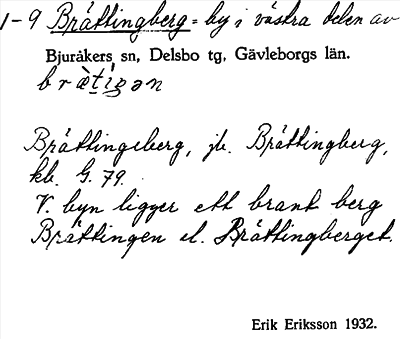 1-9 Bråttingberg = by i västra delen av
Bjuråkers sn, Delsbo tg, Gävleborgs län.
Bråttingeberg, jb. Bråttingberg,
kb. G. 79.
V. byn ligger ett brant berg
Bråttingen el. Bråttingberget.
Erik Eriksson 1932.